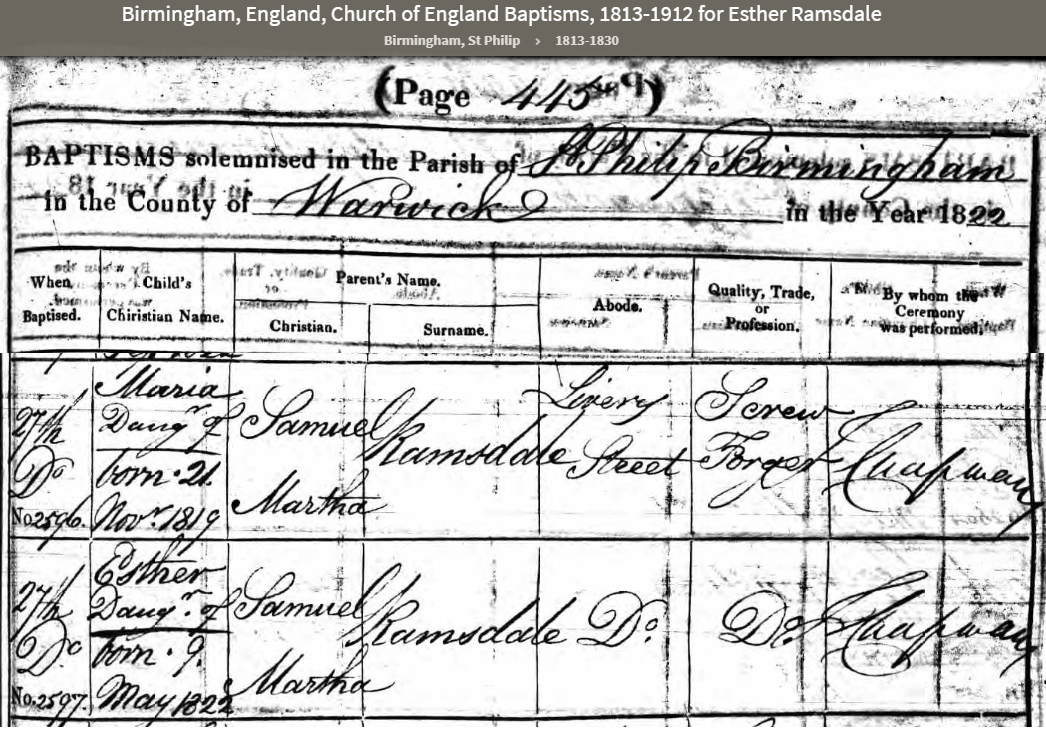 Birmingham, England, Church of England Baptisms, 1813-1912 for Esther Ramsdale
Birmingham, St Philip › 1813-1830
(Page 445)
BAPTISMS solemnised in the Parish of St. Philip Birmingham
in the County of Warwick in the Year 1822
When Baptised.
Child's Chiristian Name.
Parent's Name.
Christian.
Surname.
Abode.
Quality, Trade, or Profession.
By whom the Ceremony was performed.
27th
Do
No. 2596.
Maria
Daugr. of
born 21
Novr. 1819
Samuel
Martha
Ramsdale
Livery
Street
Screw
Forger
Chapman
27th
Do
No. 2597.
Esther
Daugr. of
born 9.
May 1822
Samuel
Martha
Ramsdale
Do
Do
Chapman